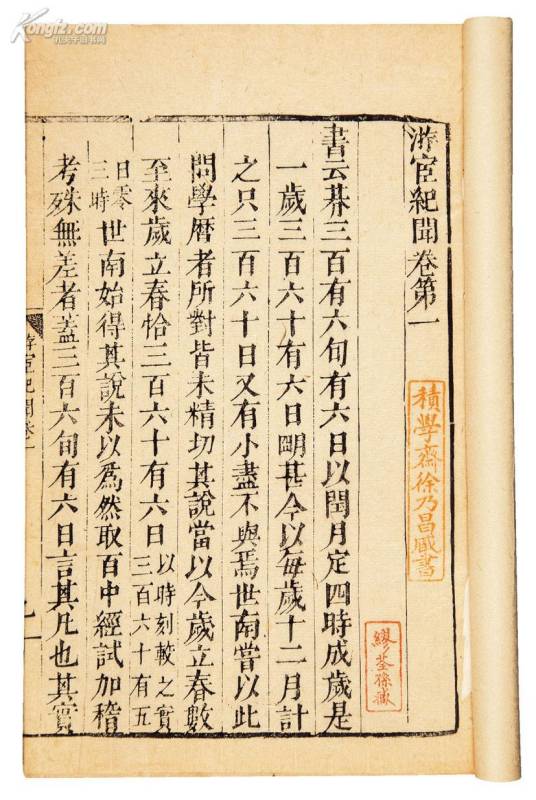 Kongfz.com
孔夫子旧书网
游宦紀聞卷第一
積學齋徐乃昌藏書
繆荃孫藏
書云朞三百有六旬有六日以閏月定四時成歲是
一歲三百六十有六日朙甚今以每歲十二月計
之只三百六十日又有小盡不與焉世南嘗以此
問學曆者所對皆未精切其說當以今歲立春數
至來歲立春恰三百六十有六日以時刻較之實三百六十有五
日零三時世南始得其說未以爲然取百中經試加稽
考殊無差者蓋三百六旬有六日言其凡也其實
游宦紀聞卷一